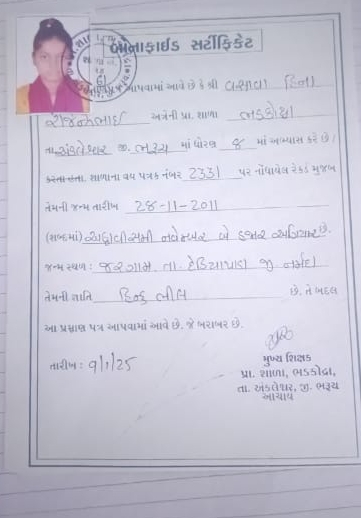 બોનાફાઈડ સર્ટીફિકેટ
આપવામાં આવે છે કે શ્રી વસાવા હિના
અત્રેની પ્રા. શાળા ભડકોદ્રા
તા. અંકલેશ્વર જી. ભરૂચ માં ધોરણ ૭ માં અભ્યાસ કરે છે /
કરતા હતા. શાળાના વય પત્રક નંબર 2331 પર નોંધાયેલ રેકર્ડ મુજબ
તેમની જન્મ તારીખ 28-11-2011
(શબ્દમાં) અઠ્ઠાવીસમી નવેમ્બર બે હજાર અગિયાર છે.
જન્મ સ્થળ : જરગામ, તા ડેડિયાપાડા જી નર્મદા
તેમની જાતિ હિન્દુ ભીલ છે, તે બદલ
આ પ્રમાણ પત્ર આપવામાં આવે છે. જે બરાબર છે.
તારીખ : 9/1/25
મુખ્ય શિક્ષક
પ્રા. શાળા, ભડકોદ્રા,
તા. અંકલેશ્વર, જી. ભરૂચ
આચાર્ય